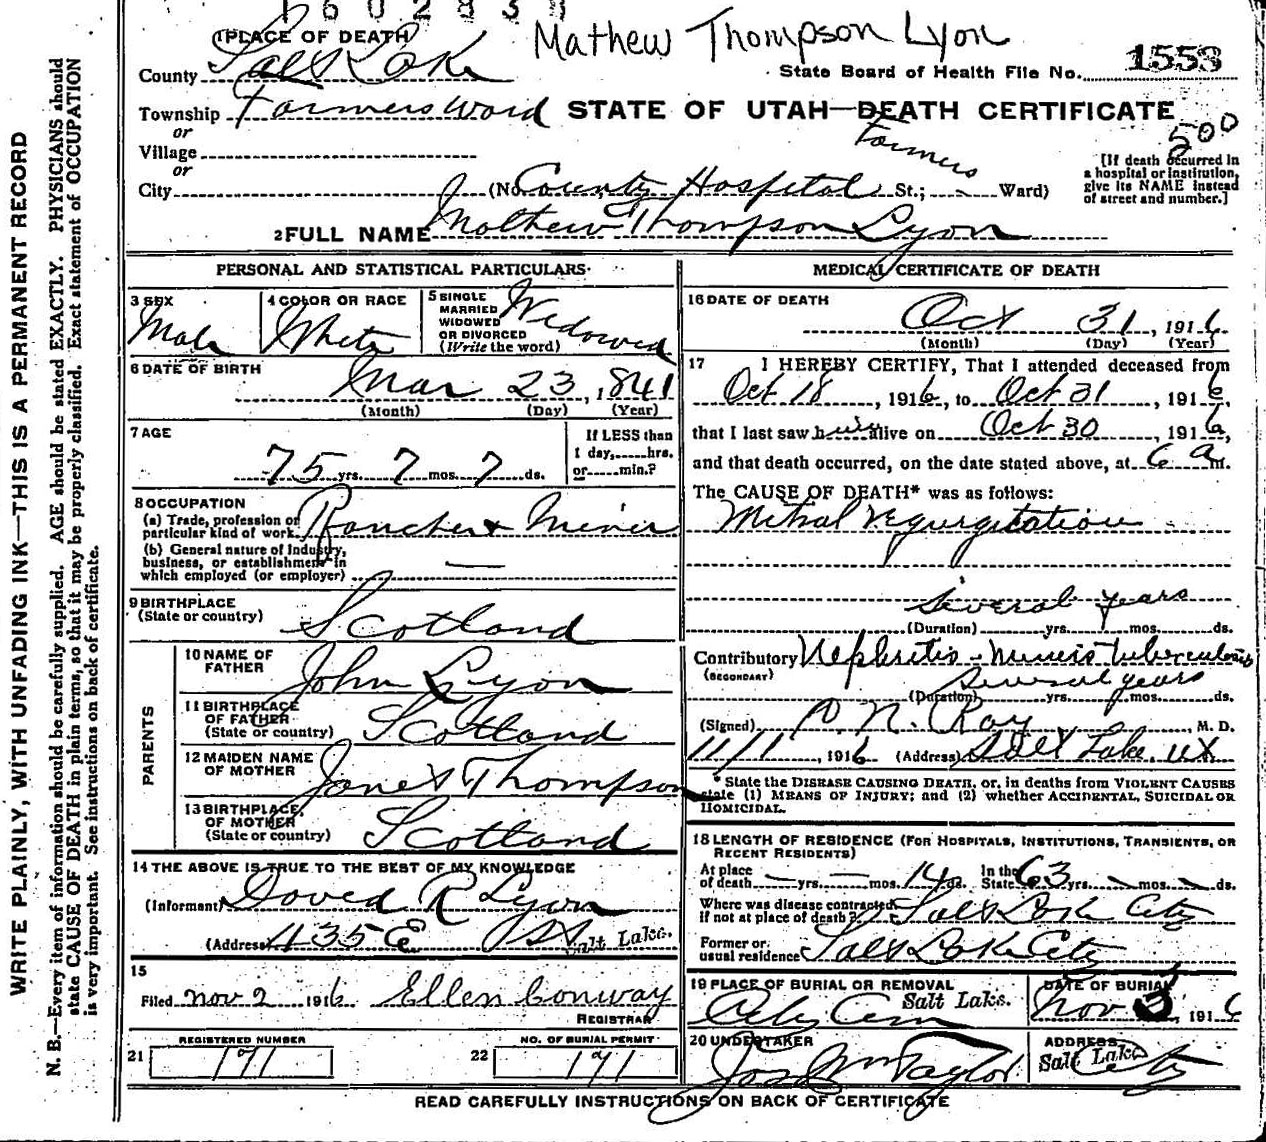 1602831
1 PLACE OF DEATH
Mathew Thompson Lyon
County Salt Lake
State Board of Health File No. 1553
Township Farmers Ward
STATE OF UTAH—DEATH CERTIFICATE
or
Village
500
or
City
(No. County Hospital St.; Farmers Ward)
[If death occurred in
a hospital or institution,
give its NAME instead
of street and number.]
2 FULL NAME Mathew Thompson Lyon
PERSONAL AND STATISTICAL PARTICULARS
3 SEX
Male
4 COLOR OR RACE
White
5 SINGLE
MARRIED
WIDOWED
OR DIVORCED
(Write the word)
Widowed
6 DATE OF BIRTH
Mar 23, 1841
(Month) (Day) (Year)
7 AGE
75 yrs. 7 mos. 7 ds.
If LESS than
1 day,......hrs.
or......min.?
8 OCCUPATION
(a) Trade, profession or
particular kind of work Rancher & Miner
(b) General nature of industry,
business, or establishment in
which employed (or employer) —
9 BIRTHPLACE
(State or country) Scotland
PARENTS
10 NAME OF
FATHER John Lyon
11 BIRTHPLACE
OF FATHER
(State or country) Scotland
12 MAIDEN NAME
OF MOTHER Janet Thompson
13 BIRTHPLACE
OF MOTHER
(State or country) Scotland
14 THE ABOVE IS TRUE TO THE BEST OF MY KNOWLEDGE
(Informant) David R Lyon
(Address) 1135 E Salt Lake.
15
Filed Nov 2 1916 Ellen Conway
REGISTRAR
REGISTERED NUMBER
21 191
NO. OF BURIAL PERMIT
22 191
MEDICAL CERTIFICATE OF DEATH
16 DATE OF DEATH
Oct 31, 1916
(Month) (Day) (Year)
17 I HEREBY CERTIFY, That I attended deceased from
Oct 18, 1916, to Oct 31, 1916,
that I last saw him alive on Oct 30, 1916,
and that death occurred, on the date stated above, at 6 a m.
The CAUSE OF DEATH* was as follows:
Mitral regurgitation
Several years
(Duration) yrs. mos. ds.
Contributory Nephritis - Miners tuberculosis
(SECONDARY)
Several years
(Duration) yrs. mos. ds.
(Signed) N. Roy, M. D.
11/1, 1916 (Address) Salt Lake, Ut
* State the DISEASE CAUSING DEATH, or, in deaths from VIOLENT CAUSES
state (1) MEANS OF INJURY; and (2) whether ACCIDENTAL, SUICIDAL OR
HOMICIDAL.
18 LENGTH OF RESIDENCE (FOR HOSPITALS, INSTITUTIONS, TRANSIENTS, OR
RECENT RESIDENTS)
At place
of death — yrs. — mos. 14 ds. In the
State 63 yrs. — mos. — ds.
Where was disease contracted,
if not at place of death? Salt Lake City
Former or
usual residence Salt Lake City
19 PLACE OF BURIAL OR REMOVAL
City Cem Salt Lake.
DATE OF BURIAL
Nov 3, 1916
20 UNDERTAKER
Jos Wm Taylor
ADDRESS
Salt Lake City
READ CAREFULLY INSTRUCTIONS ON BACK OF CERTIFICATE
WRITE PLAINLY, WITH UNFADING INK—THIS IS A PERMANENT RECORD
N. B.—Every item of information should be carefully supplied. AGE should be stated EXACTLY. PHYSICIANS should
state CAUSE OF DEATH in plain terms, so that it may be properly classified. Exact statement of OCCUPATION
is very important. See instructions on back of certificate.